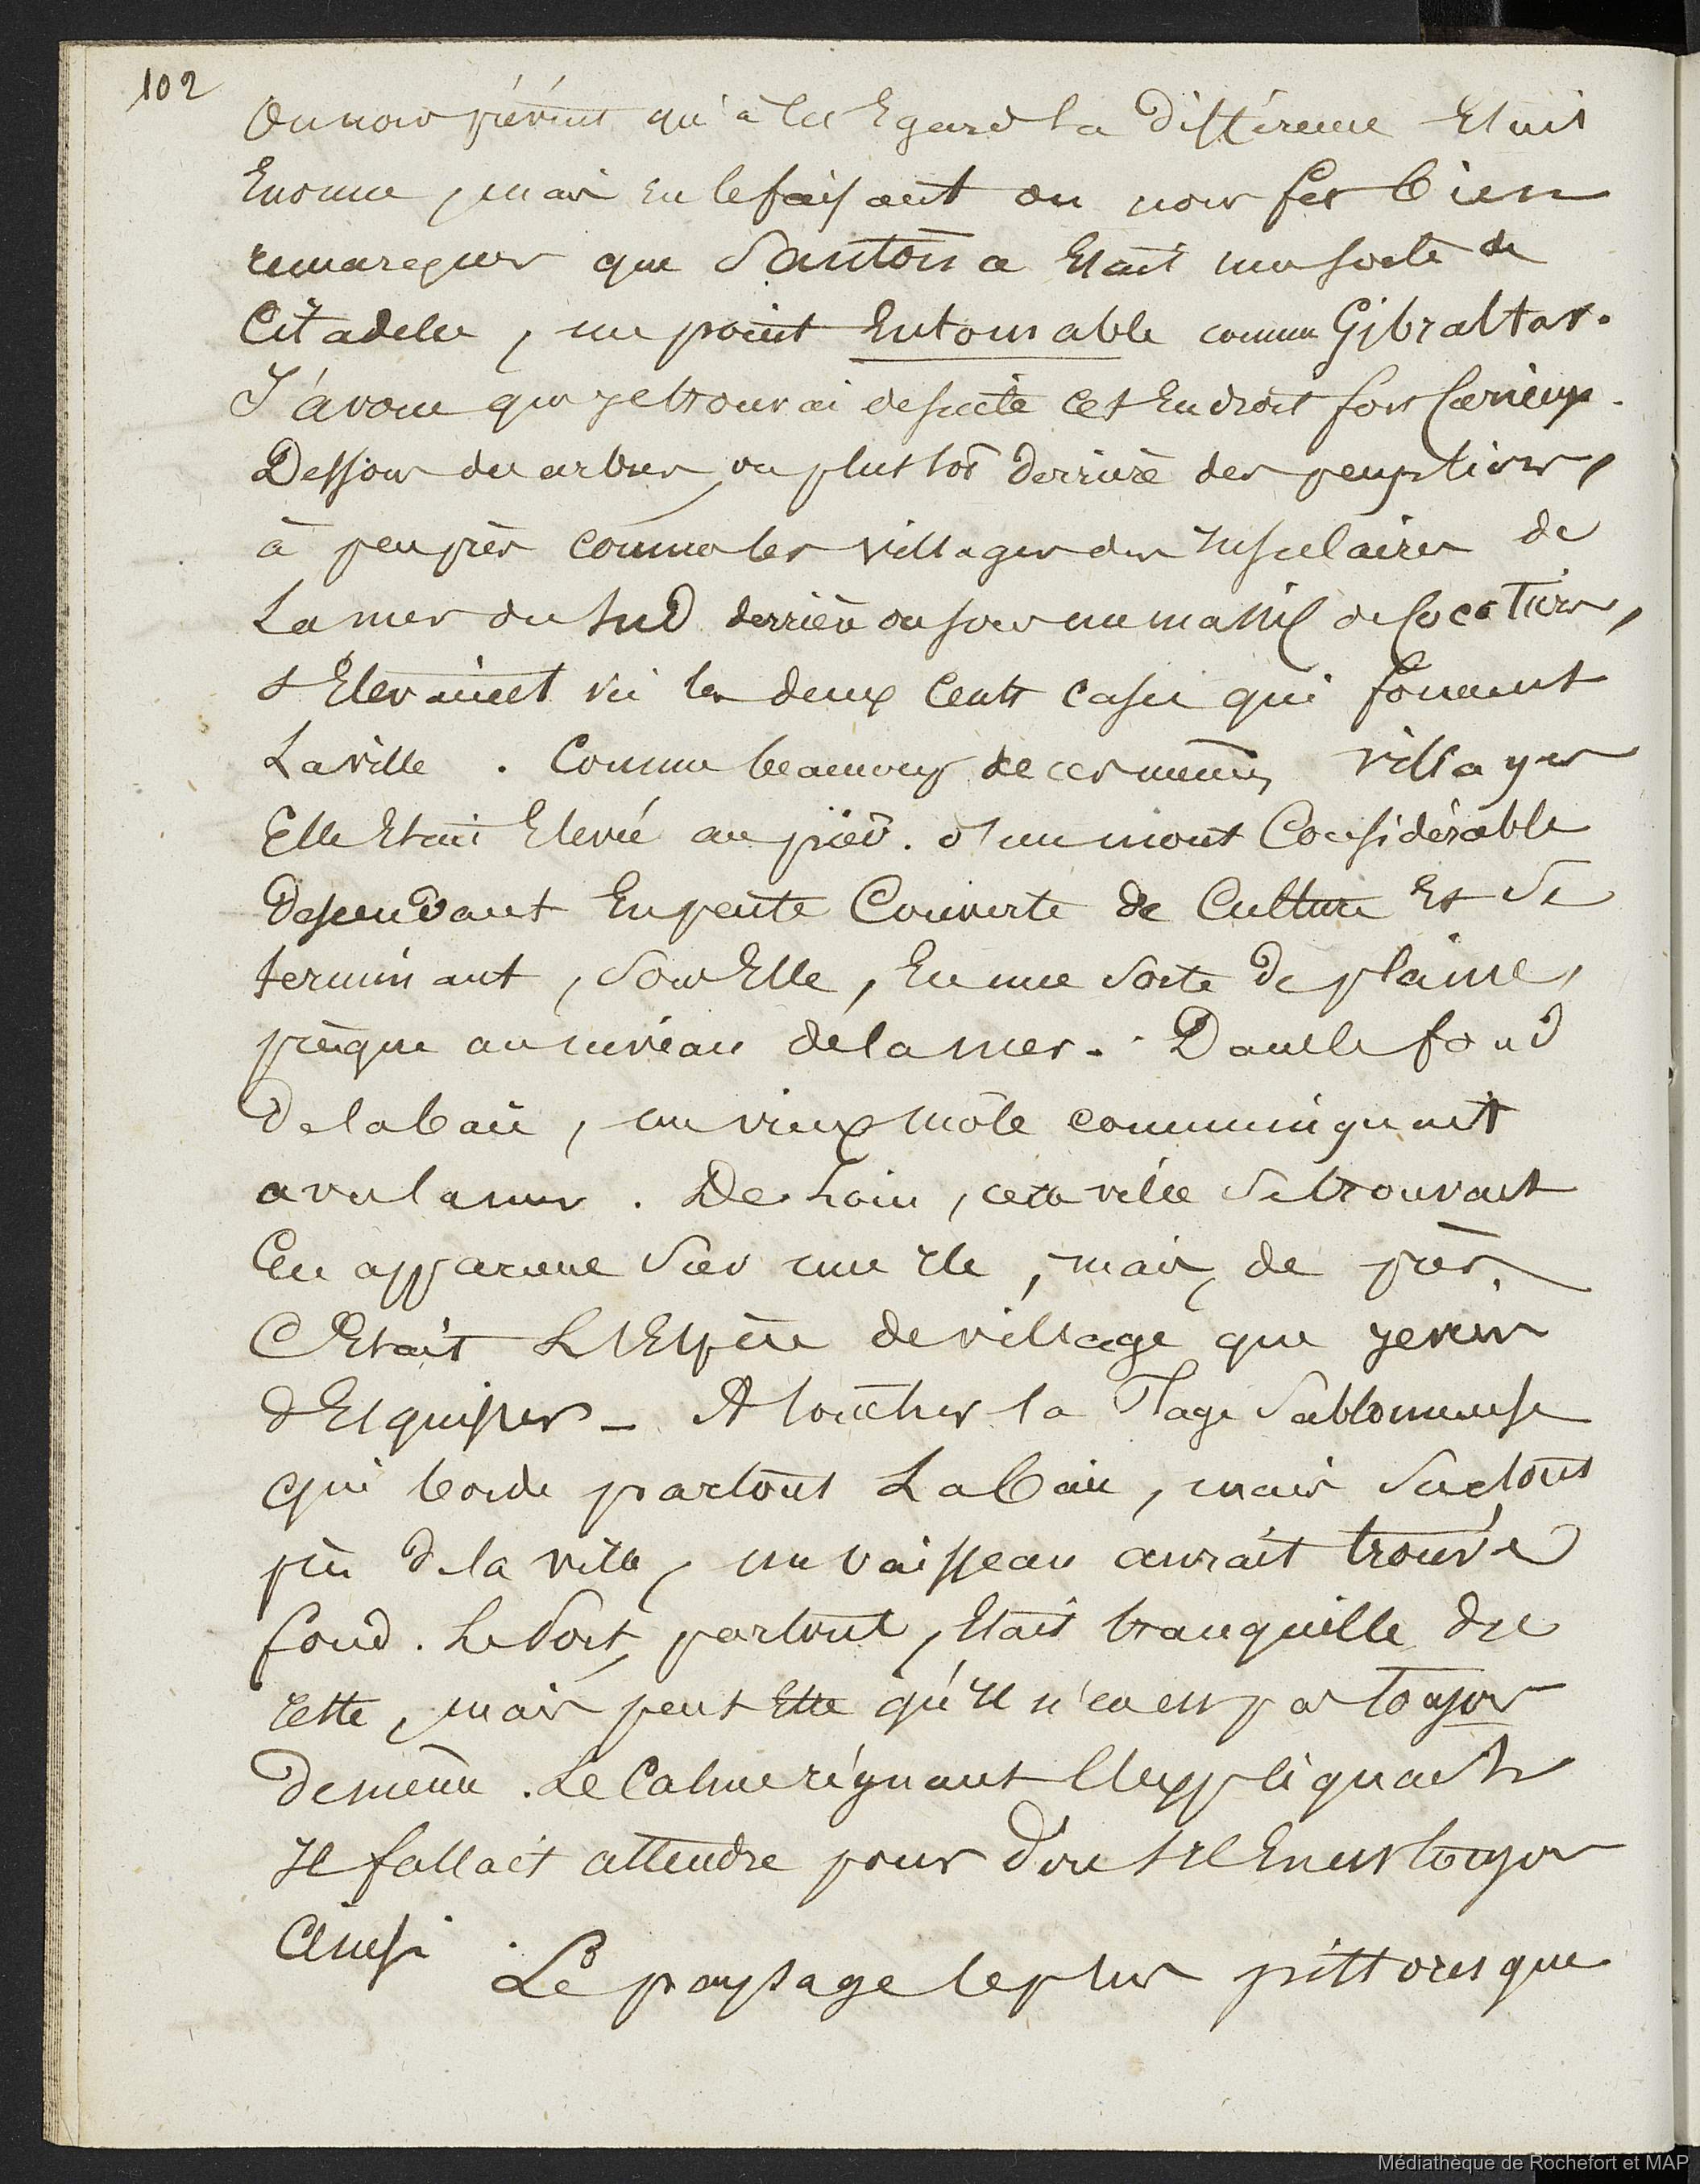 102
On nous prévint qu'à cet Egard la Différence Etait
Enorme, mais en le faisant on nous fit bien
remarquer que Santona Etait une sorte de
Citadelle, un point Entourable comme Gibraltar.
J'avoue que je trouvai de suite cet Endroit fort Curieux.
Dessous des arbres, ou plustôt derrière des peupliers,
à peu près comme les villages des Insulaires de
La mer du Sud derrière ou sous un massif de Cocotiers,
s'Elevaient ici les deux Cents cases qui forment
La ville. Comme beaucoup de ces mêmes villages
Elle Etait Elevée au pied d'un mont Considérable
Descendant En pente Couverte de Culture Et Se
terminant, Sous Elle, En une Sorte de plaine,
presque au niveau de la mer. Dans le fond
De la baie, un vieux môle communiquait
avec la mer. De Loin, cette ville Se trouvait
En apparence Sur une Ile, mais, de près,
C'Etait L'Espèce de village que je viens
d'Esquisser - A toucher la Plage Sablonneuse
qui borde partout La baie, mais Surtout
près de la ville, un vaisseau aurait trouvé
fond. Le Port, partout, Etait tranquille de
reste, mais peut Etre qu'Il n'en est pas toujours
de même. Le Calme régnant l'expliquait
Il fallait attendre pour dire s'Il En est toujours
Ainsi
Le paysage le plus pittoresque
Médiathèque de Rochefort et MAP